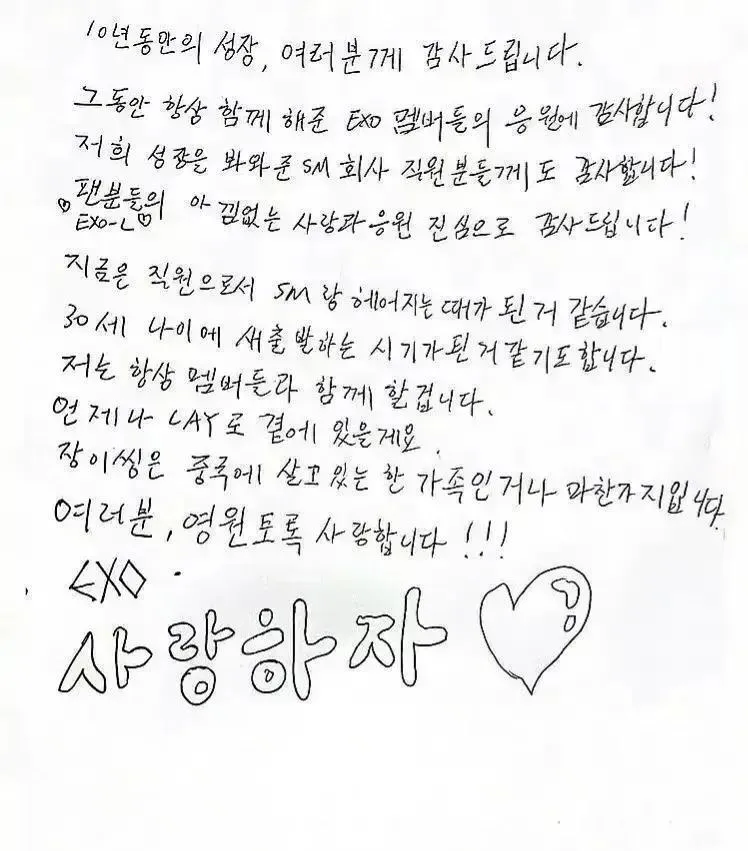 10년동안의 성장, 여러분께 감사드립니다.
그동안 항상 함께 해준 EXO 멤버들의 응원에 감사합니다!
저희 성장을 봐와준 SM 회사 직원분들께도 감사합니다!
♡팬분들의 아낌없는 사랑과 응원 진심으로 감사드립니다!
EXO-L♡
지금은 직원으로서 SM랑 헤어지는 때가 된 거 같습니다.
30세 나이에 새출발하는 시기가 된 거 같기도합니다.
저는 항상 멤버들과 함께 할겁니다.
언제나 LAY로 곁에 있을게요.
장이씽은 중국에 살고있는 한 가족인거나 마찬가지입니다.
여러분, 영원토록 사랑합니다!!!
EXO
사랑하자 ♡